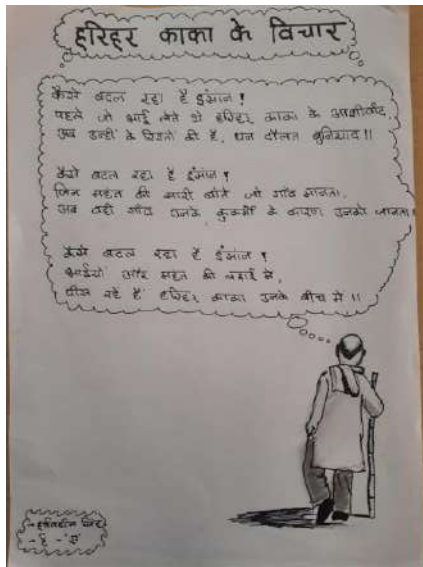 हरिहर काका के विचार
कैसे बदल रहा है इंसान !
पहले जो भाई लेते थे हरिहर काका के आशीर्वाद,
अब उन्हीं के रिश्तों की है, धन दौलत बुनियाद !!
कैसे बदल रहा है इंसान !
जिन महंत की सारी बातें जो गाँव मानता,
अब वही गाँव उनके कुकर्मों के कारण उनको जानता।
कैसे बदल रहा है इंसान !
भाईयों और महंत की लड़ाई में,
पीस रहे हैं हरिहर काका उनके बीच में !!